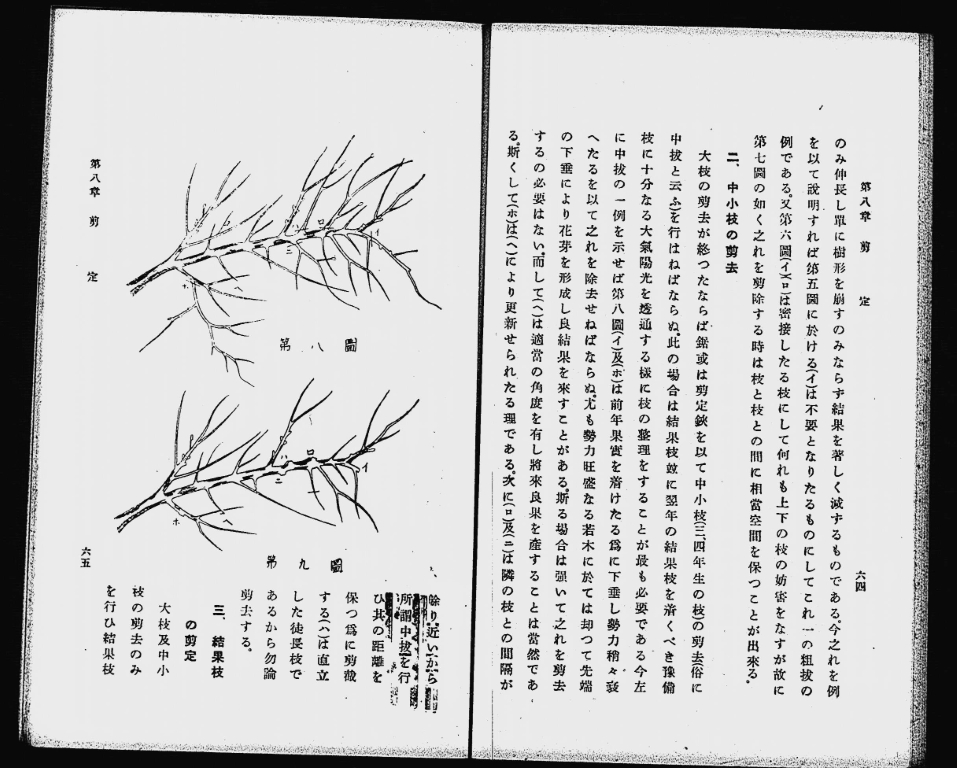 第八章 剪定
六四
のみ伸長し單に樹形を崩すのみならず結果を著しく減ずるものである。今之れを例
を以て說明すれば第五圖に於ける(イ)は不要となりたるものにしてこれ一の粗拔の
例である。又第六圖(イ)(ロ)は密接したる枝にして何れも上下の枝の妨害をなすが故に
第七圖の如く之れを剪除する時は枝と枝との間に相當空間を保つことが出來る。
二、中小枝の剪去
大枝の剪去が終つたならば鋸或は剪定鋏を以て中小枝(三、四年生の枝)の剪去(俗に
中拔と云ふ)を行はねばならぬ。此の場合は結果枝竝に翌年の結果枝を着くべき豫備
枝に十分なる大氣陽光を透通する樣に枝の整理をすることが最も必要である今左
に中拔の一例を示せば第八圖(イ)及(ホ)は前年果實を着けたる爲に下垂し勢力稍々衰
へたるを以て之れを除去せねばならぬ。尤も勢力旺盛なる若木に於ては却つて先端
の下垂により花芽を形成し良結果を來すことがある。斯る場合は强いて之れを剪去
するの必要はない。而して(ヘ)は適當の角度を有し將來良果を產することは當然であ
る。斯くして(ホ)は(ヘ)により更新せられたる理である。次に(ロ)及(ニ)は隣の枝との間隔が
第八章 剪定
六五
イ
ロ
ハ
ニ
ホ
第八圖
イ
ロ
ハ
ニ
ホ
ヘ
第九圖
餘り近いから
所謂中拔を行
ひ其の距離を
保つ爲に剪截
する(ハ)は直立
した徒長枝で
あるから勿論
剪去する。
三、結果枝
の剪定
大枝及中小
枝の剪去のみ
を行ひ結果枝